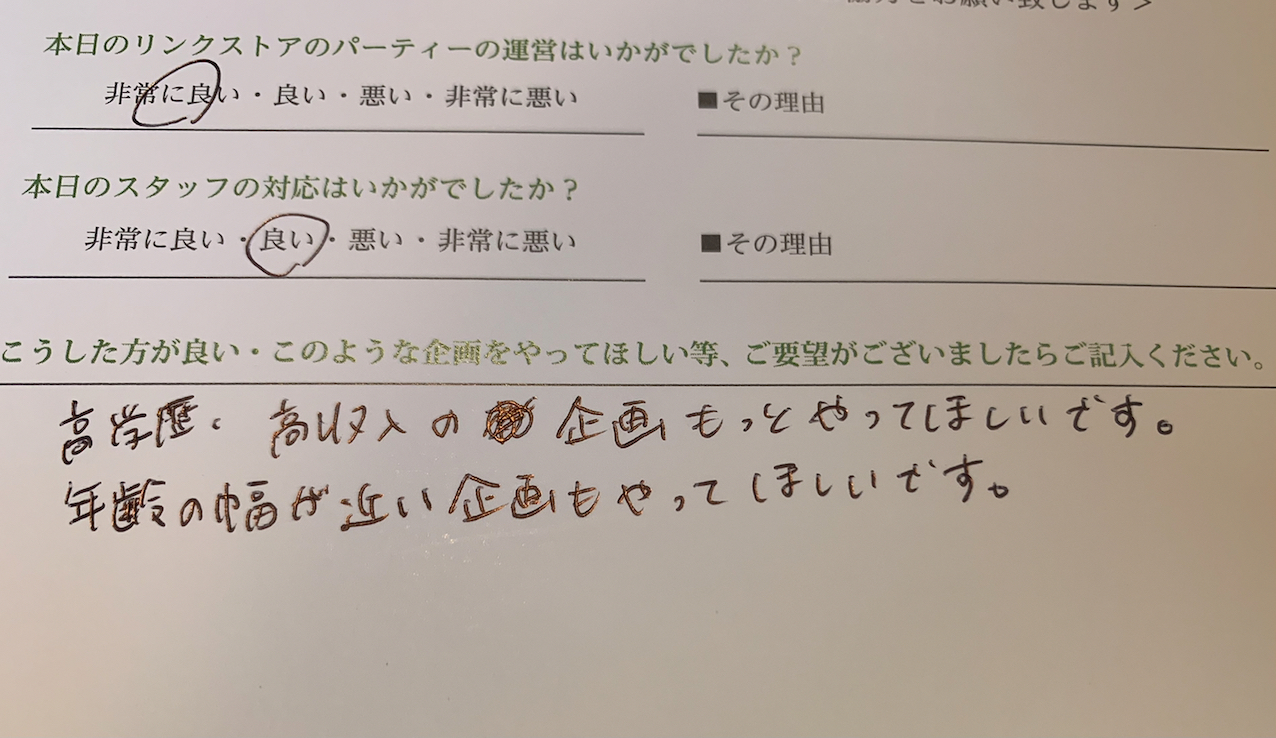 協力をお願い致します＞
本日のリンクストアのパーティーの運営はいかがでしたか？
非常に良い・良い・悪い・非常に悪い
■その理由
本日のスタッフの対応はいかがでしたか？
非常に良い・良い・悪い・非常に悪い
■その理由
こうした方が良い・このような企画をやってほしい等、ご要望がございましたらご記入ください。
高学歴、高収入の企画もっとやってほしいです。
年齢の幅が近い企画もやってほしいです。